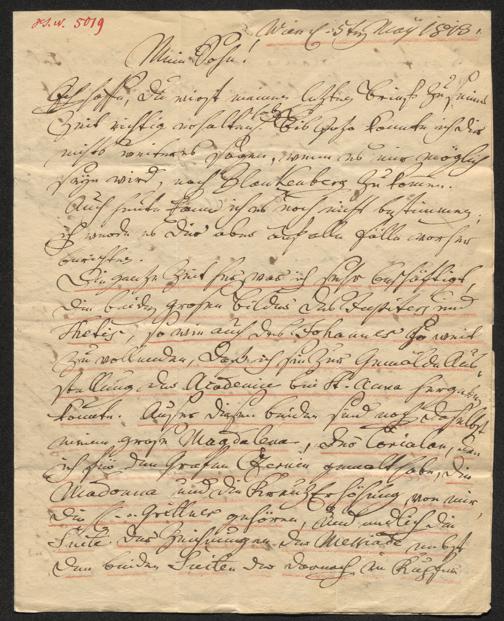 H.J.N. 5019
Wien d. 5ten May 1813.
Mein Sohn!
Ich hoffe, Du wirst meinen letzten Brief zu seiner
Zeit richtig erhalten haben. Bis jetzt konnte ich dir
nichts weiteres sagen, wenn es mir möglich
seyn wird, nach Blankenberg zu kommen.
Auch heute kann ich es noch nicht bestimmen;
ich werde es Dir aber auf alle Fälle vorher
berichten.
Die ganze Zeit her, war ich sehr beschäftigt,
die beiden großen Bilder des Jupiters und
Thetis, so wie auch des Johannes so weit
zu vollenden, daß ich sie zur Gemälde Aus-
stellung der Academie bei St. Anna hergeben
konnte. Außer diesen beiden sind noch daselbst
meine große Magdalena, der Coriolan, den
ich für den Grafen Czernin gemalt habe, die
Madonna und die Kreuz Erhöhung von mir,
die C. v. Grittner gehören, und endlich die
Suite der Zeichnungen der Messiade nebst
den beiden Suiten der darnach in Kupfer